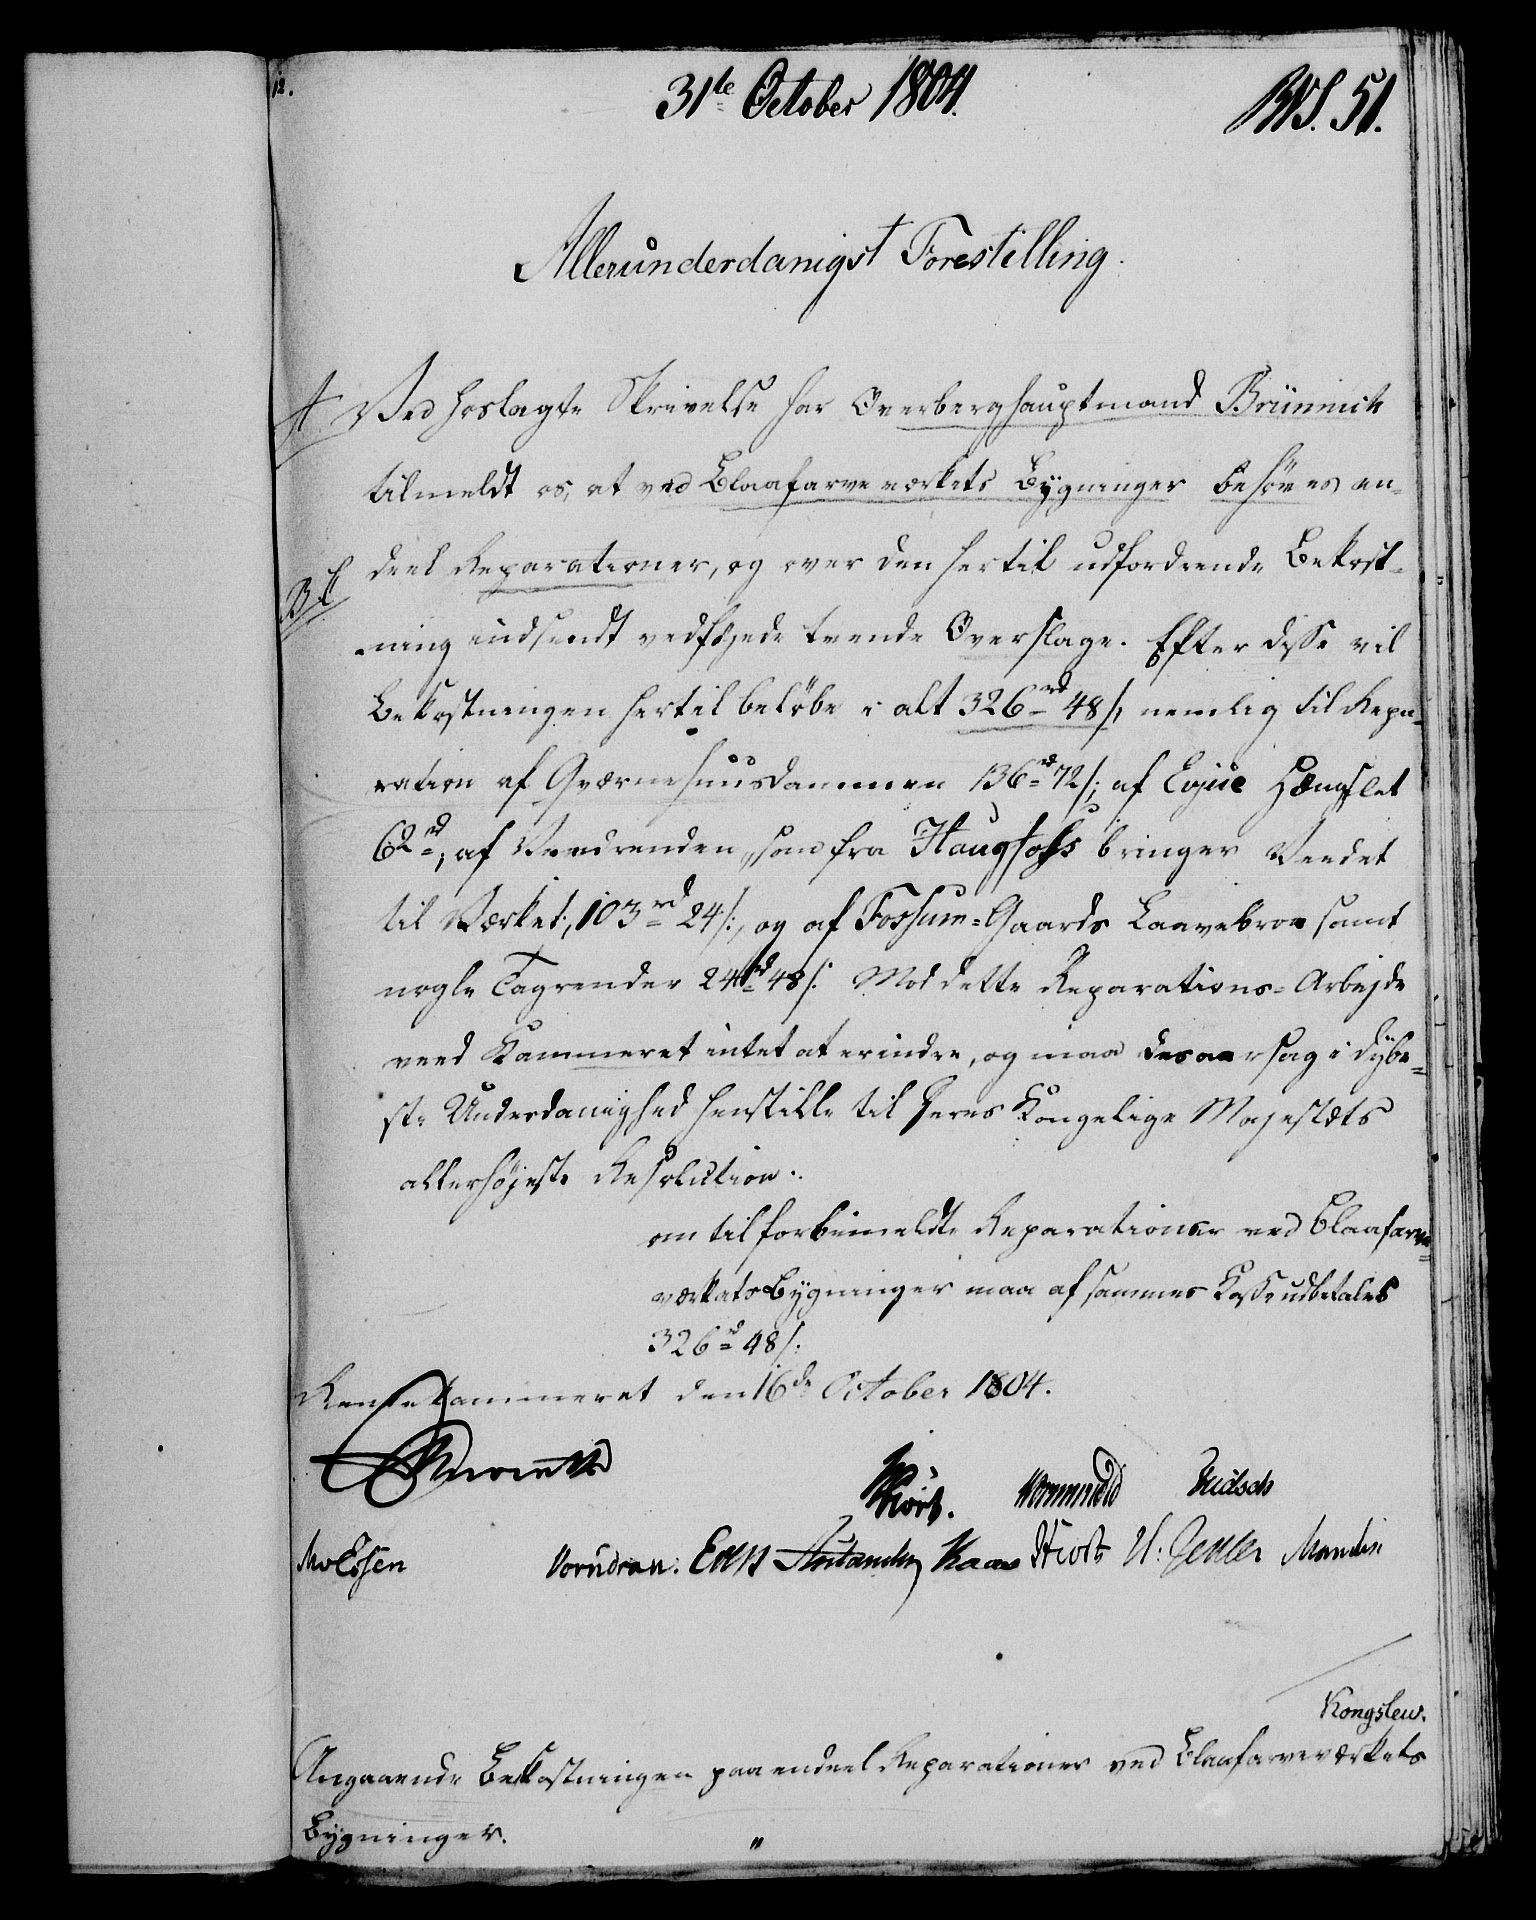 12.
31te October 1804.
RVS. 51.
Allerunderdanigst Forestilling.
A Ved hoslagte Skrivelse har Overberghauptmand Brünnich
tilmeldt os, at ved Blaafarveværkets Bygninger behöves en-
deel Reparationer, og over den hertil udfordrende Bekost-
B C
ning indsendt vedföjede tvende Overslage. Efter disse vil
Bekostningen hertil belöbe i alt 326rd 48/, nemlig til Repa-
ration af Qværnehuusdammen 136rd 72/; af Hængslet
62rd; af Vandrenden, som fra Haugfoss bringer Vandet
til Værket, 103rd 24/:, og af Fossum-Gaards Laavebroe samt
nogle Tagrender 24rd 48/: Mod dette Reparations-Arbejde
veed Kammeret intet at erindre, og maa desaarsag i dybe-
ste Underdanighed henstille til Deres Kongelige Majestæts
allerhöjeste Resolution:
om til forbemeldte Reparationer ved Blaafarve-
værkets Bygninger maa af sammes Kasse udbetales
326rd 48/:
Rentekammeret den 16de October 1804.
Hiort. Wormskiold
Vorndran. Kaas Hiort
Kongslew.
Angaaende Bekostningen paa endeel Reparationer ved Blaafarveværkets
Bygninger.
"